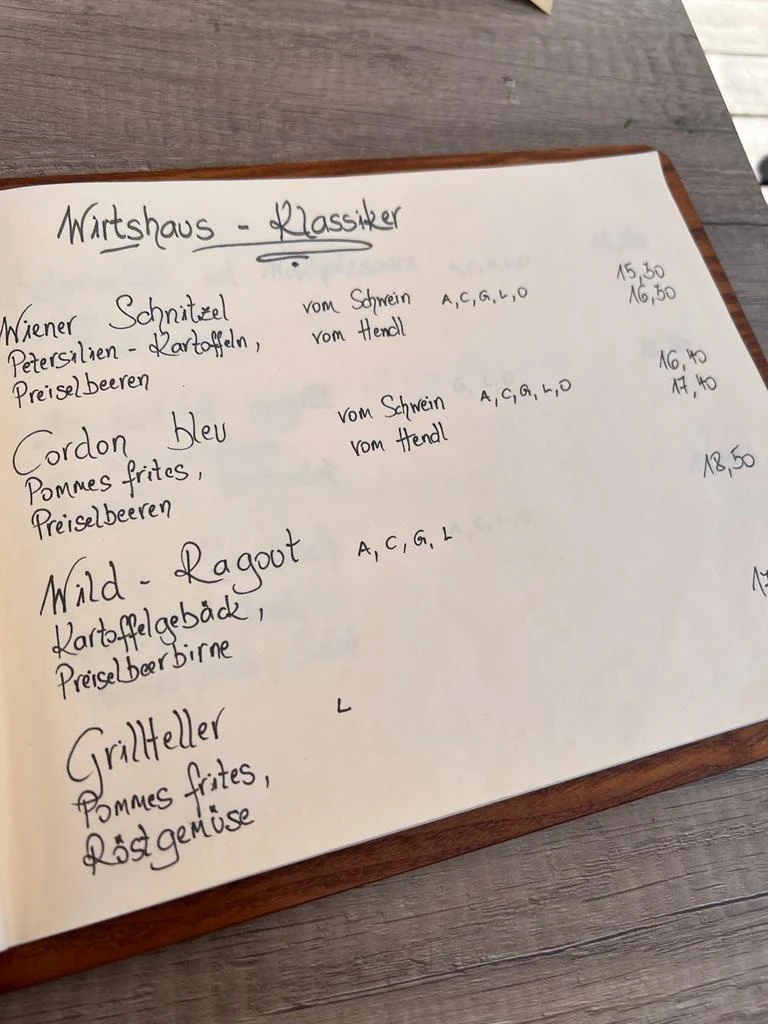 Wirtshaus - Klassiker
Wiener Schnitzel vom Schwein A, C, G, L, O 15,30
Petersilien - Kartoffeln, vom Hendl 16,30
Preiselbeeren
Cordon bleu vom Schwein A, C, G, L, O 16,40
Pommes frites, vom Hendl 17,40
Preiselbeeren
Wild - Ragout A, C, G, L 18,50
Kartoffelgebäck,
Preiselbeerbirne
Grillteller L 17
Pommes frites,
Röstgemüse